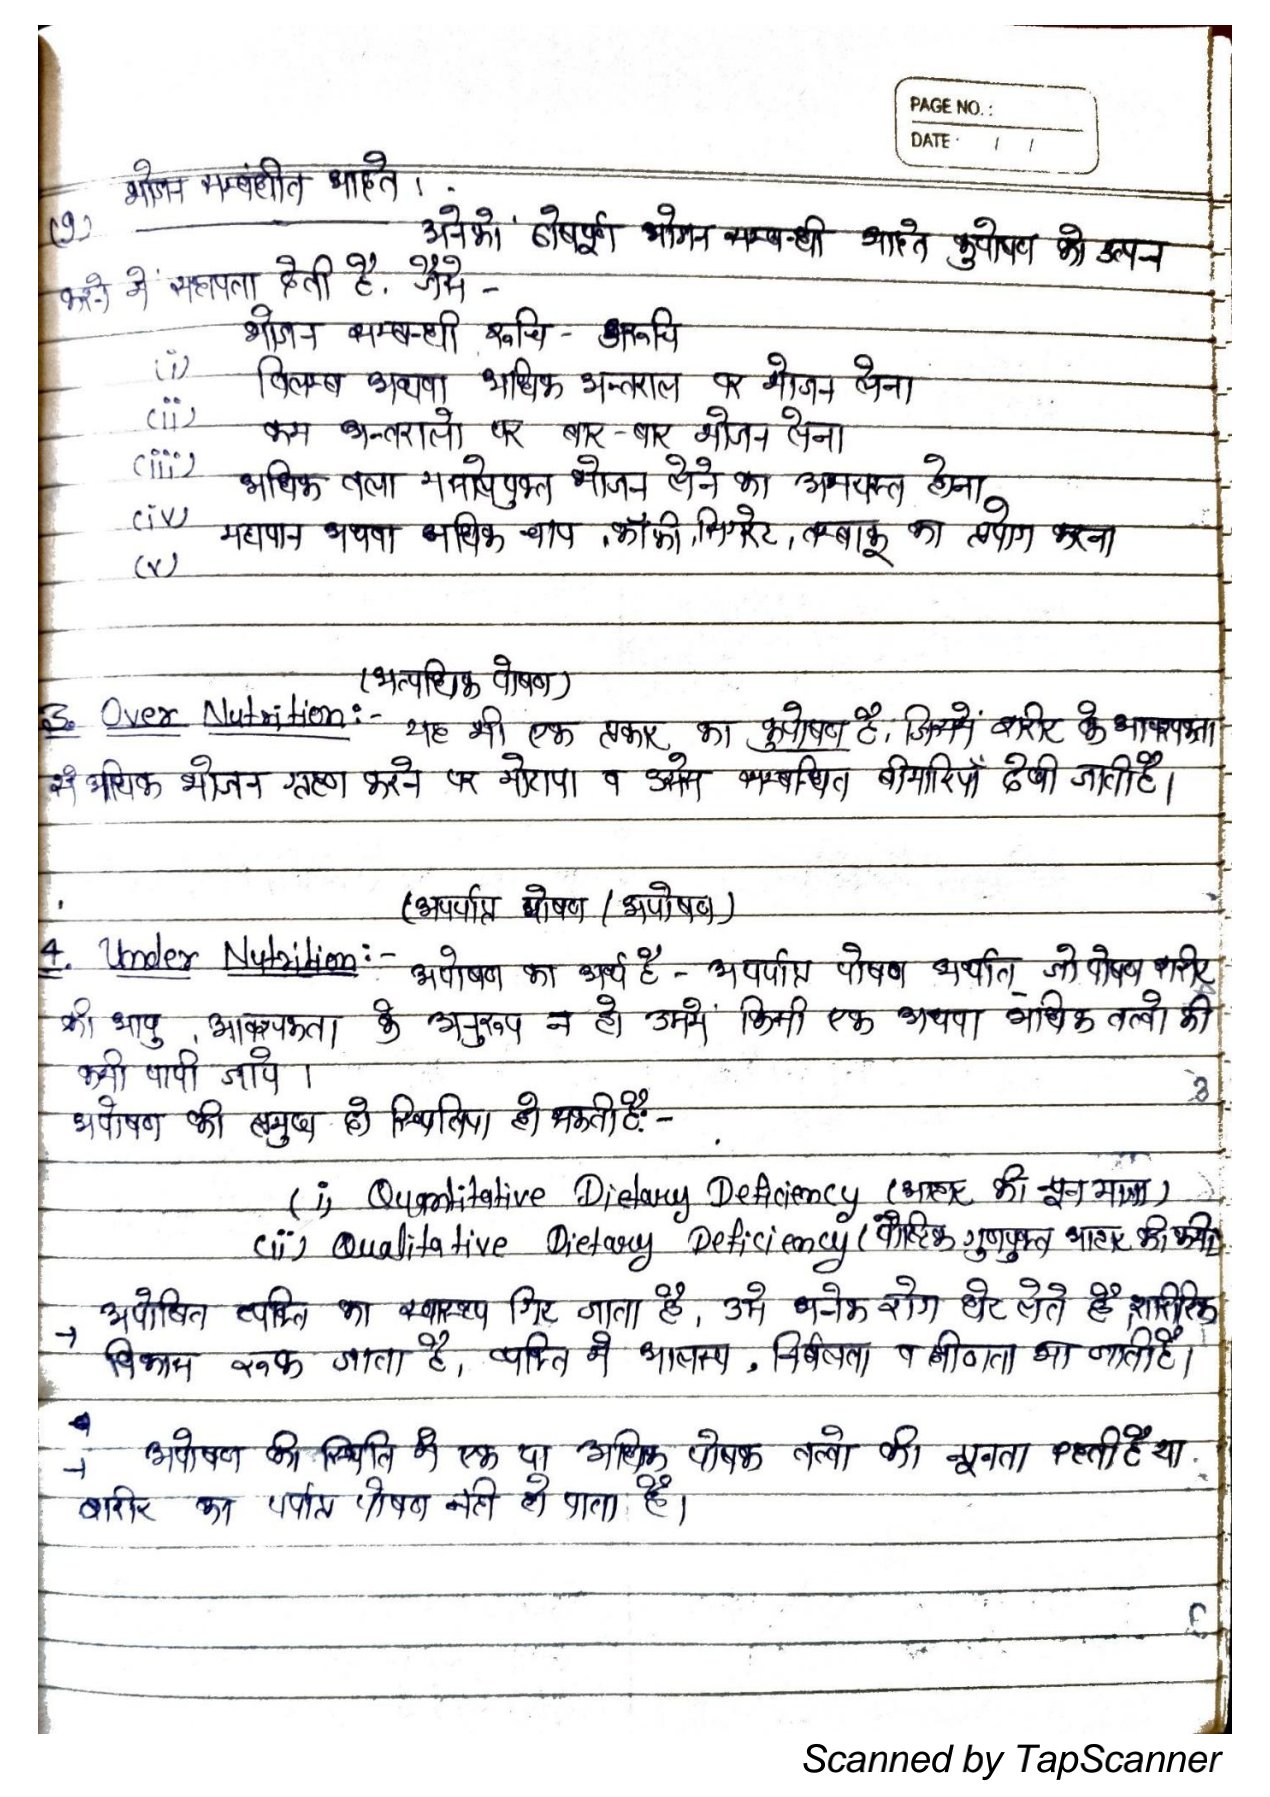 PAGE NO. :
DATE : / /
भोजन सम्बंधीत आदते।
(9) अनेको दोषपूर्ण भोजन सम्बन्धी आदते कुपोषण को उत्पन
करने में सहायता देती है. जैसे -
(i) भोजन सम्बन्धी रूचि - अरूचि
(ii) विलम्ब अथवा अधिक अन्तराल पर भोजन लेना
(iii) कम अन्तरालो पर बार-बार भोजन लेना
(iv) अधिक तला भोजन लेने का अभयस्त होना
(v) मद्यपान अथवा अधिक चाय, कॉफी, सिगरेट, तम्बाकू का प्रयोग करना
(अत्यधिक पोषण)
3. Over Nutrition:- यह भी एक प्रकार का कुपोषण है, जिसमें शरीर के आवश्यकता
से अधिक भोजन ग्रहण करने पर मोटापा व उससे सम्बन्धित बीमारियाँ देखी जाती है।
(अपर्याप्त पोषण / अपोषण)
4. Under Nutrition:- अपोषण का अर्थ है - अपर्याप्त पोषण अर्थात् जो पोषण शरीर
की आयु, आवश्यकता के अनुरूप न हो उसमें किसी एक अथवा अधिक तत्वो की
कमी पायी जाये।
अपोषण की प्रमुख दो स्थितिया हो सकती है:-
(i) Quantitative Dietary Deficiency (आहार की न्यून मात्रा)
(ii) Qualitative Dietary Deficiency (पौष्टिक गुणयुक्त आहार की कमी)
→ अपोषित व्यक्ति का स्वास्थ्य गिर जाता है, उसे अनेक रोग घेट लेते है, शारीरिक
विकास रूक जाता है, व्यक्ति में आलस्य, निर्बलता व क्षीणता आ जाती है।
→ अपोषण की स्थिति में एक या अधिक पोषक तत्वो की न्यूनता रहती है या
शरीर का पर्याप्त पोषण नही हो पाता है।
Scanned by TapScanner